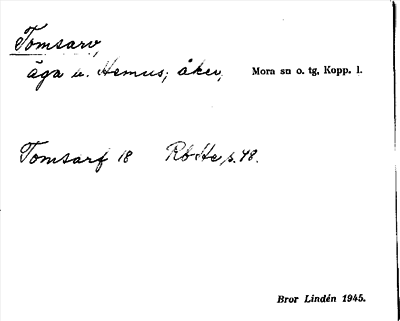 Tomsarv,
äga u. Hemus; åker, Mora sn o. tg, Kopp. l.
Tomsarf 18 Rb He, s. 48.
Bror Lindén 1945.